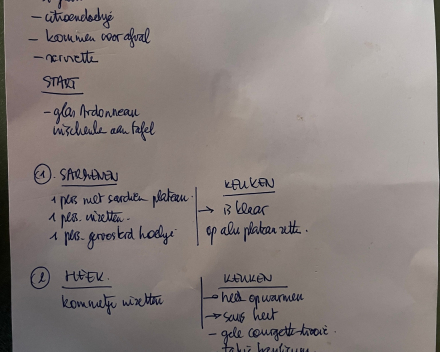 - citroendoekje
- kommen voor afval
- servette
START
- glas Ardonneau
inschenken aan tafel
① SARDIENEN
1 pers met sardien plateau.
1 pers. inzetten.
1 pers. geroosterd hoekje
KEUKEN
→ is klaar
op alu plateau zetten.
② HEEK.
kommetje inzetten
KEUKEN
→ heek opwarmen
→ saus heet
- gele courgette